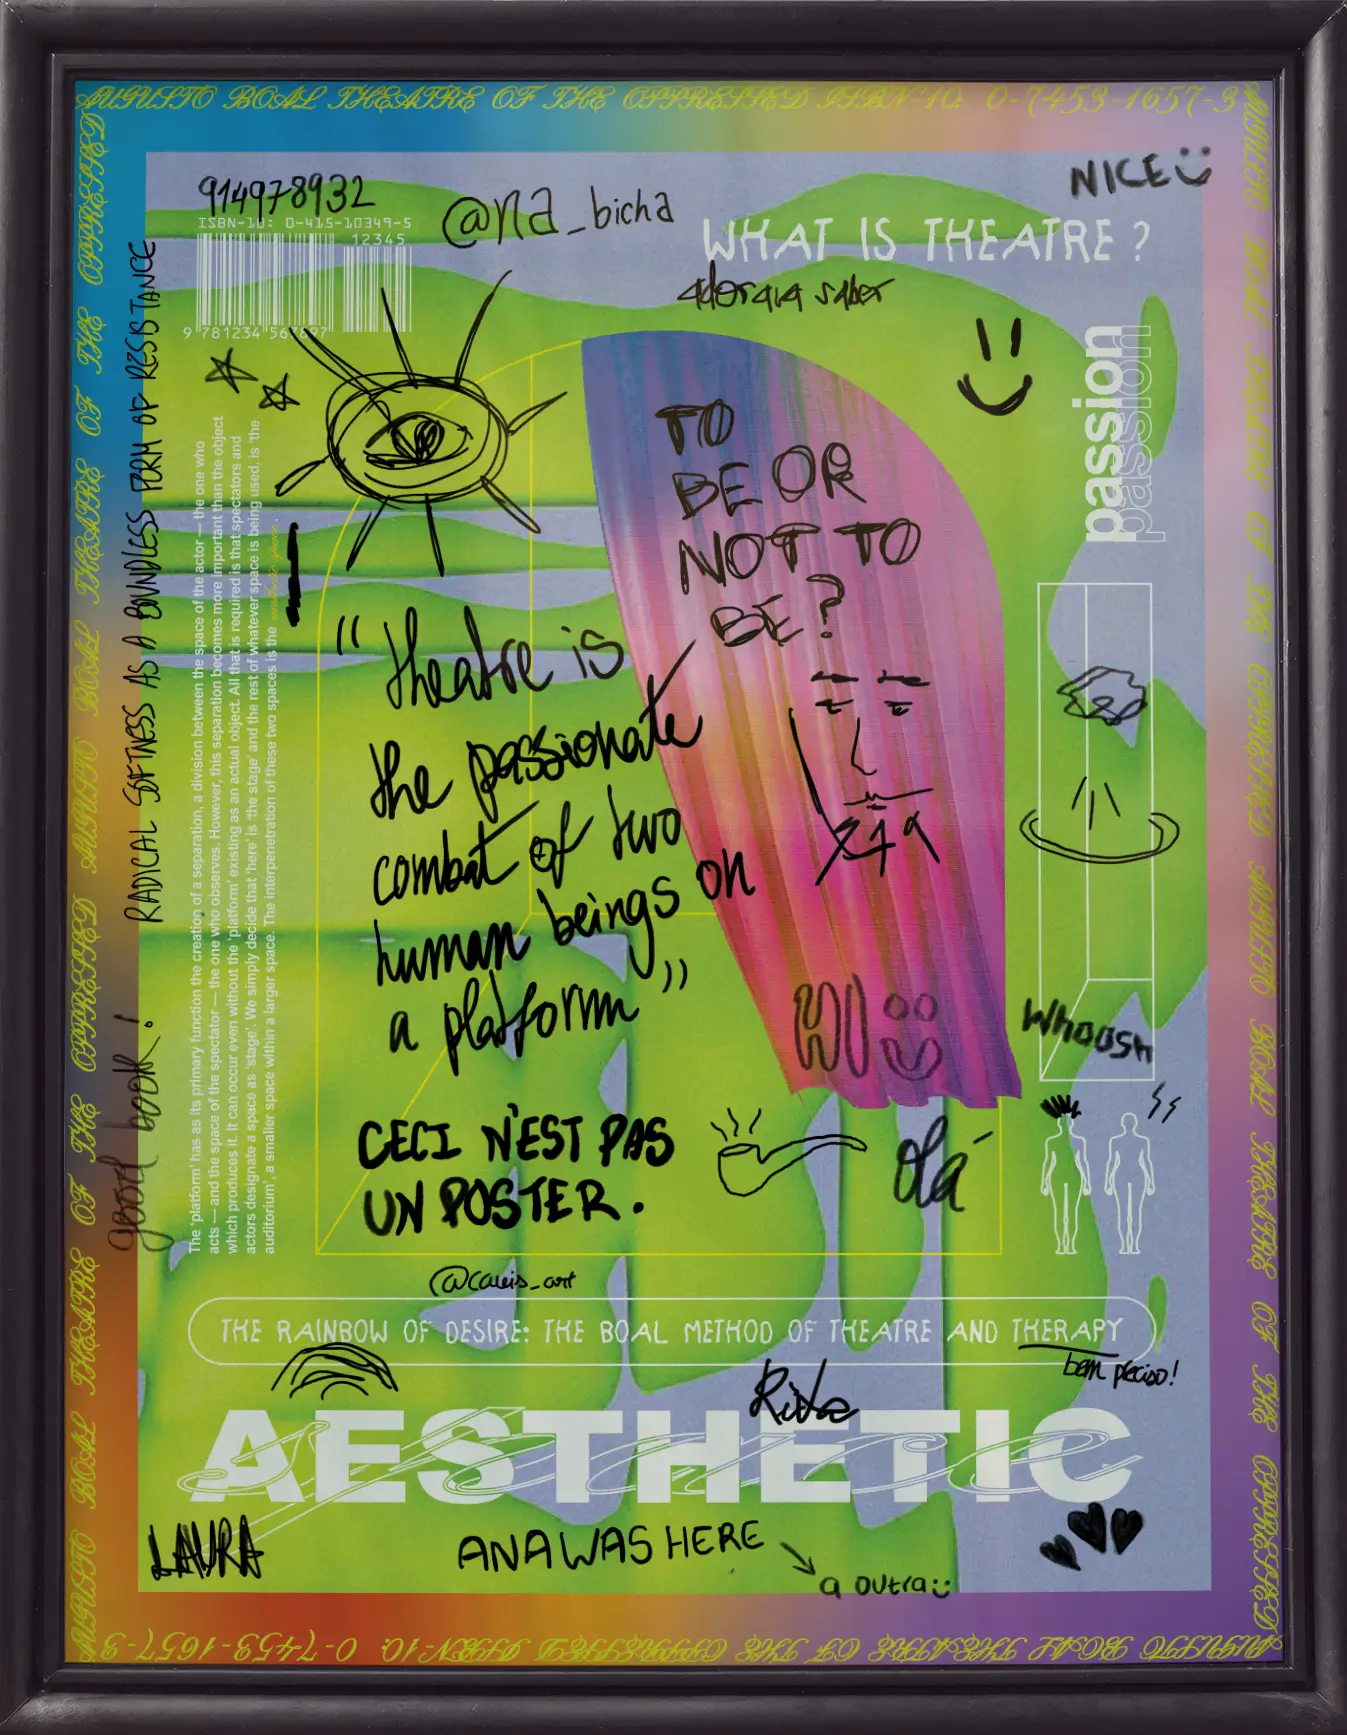 AUGUSTO BOAL THEATRE OF THE OPPRESSED ISBN-10: 0-7453-1657-3
AUGUSTO BOAL THEATRE OF THE OPPRESSED AUGUSTO BOAL THEATRE OF THE OPPRESSED AUGUSTO BOAL THEATRE OF THE OPPRESSED
914978932
ISBN-10: 0-415-10349-5
12345
9 781234 567897
@na_bicha
NICE
WHAT IS THEATRE?
adorava saber
passion
passion
RADICAL SOFTNESS AS A BOUNDLESS FORM OF RESISTANCE
good book!
The 'platform' has as its primary function the creation of a separation, a division between the space of the actor — the one who
acts — and the space of the spectator — the one who observes. However, this separation becomes more important than the object
which produces it. It can occur even without the 'platform' existing as an actual object. All that is required is that spectators and
actors designate a space as 'stage'. We simply decide that 'here' is 'the stage' and the rest of whatever space is being used, is 'the
auditorium', a smaller space within a larger space. The interpenetration of these two spaces is the aesthetic space.
TO
BE OR
NOT TO
BE?
"theatre is
the passionate
combat of two
human beings on
a platform"
Whoosh
CECI N'EST PAS
UN POSTER.
Olá
@caueis_art
THE RAINBOW OF DESIRE: THE BOAL METHOD OF THEATRE AND THERAPY
bem preciso!
Rita
AESTHETIC
LAURA
ANA WAS HERE
a outra
AUGUSTO BOAL THEATRE OF THE OPPRESSED AUGUSTO BOAL THEATRE OF THE OPPRESSED AUGUSTO BOAL THEATRE OF THE OPPRESSED
AUGUSTO BOAL THEATRE OF THE OPPRESSED ISBN-10: 0-7453-1657-3